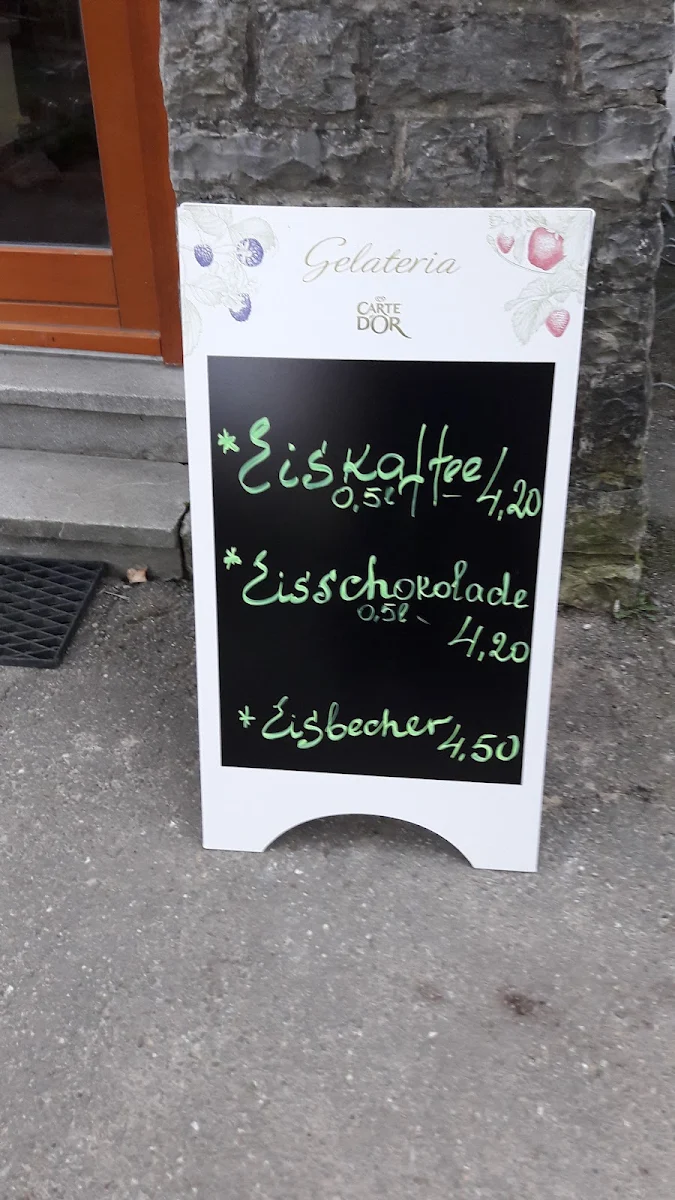 Gelateria
CARTE
D'OR
* Eiskaffee 4,20
0,5l
* Eisschokolade
0,5l
4,20
* Eisbecher 4,50